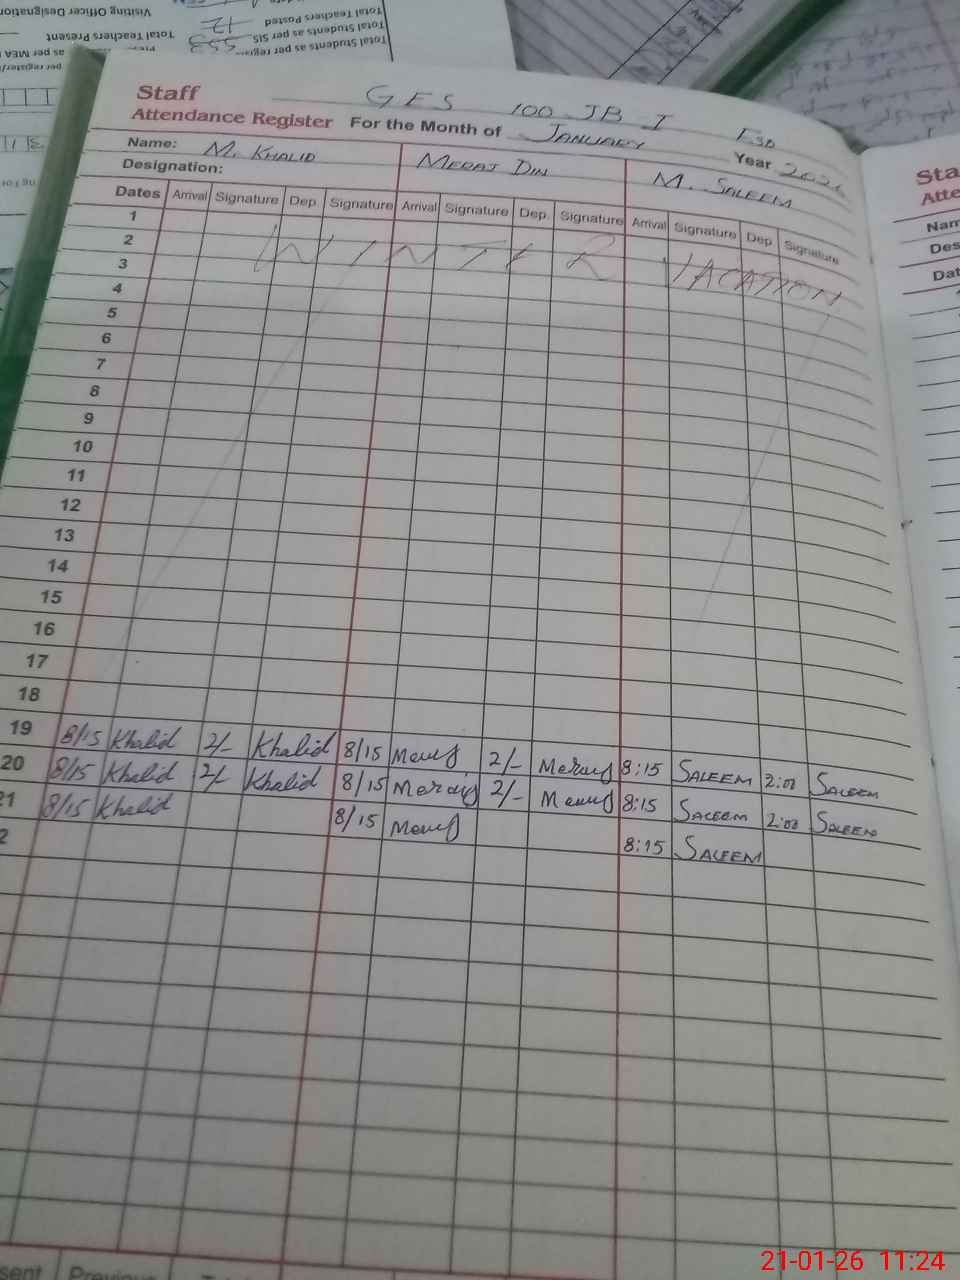 Visiting Officer Designation
Total Teachers Posted 12
Total Teachers Present
Total Students as per SIS
Total Students as per
as per MEA
per register
Staff
Attendance Register For the Month of January Year 2026
GES 100 JB I FSD
Name: M. KHALID MERAJ DIN M. SALEEM
Designation:
Dates Arrival Signature Dep. Signature Arrival Signature Dep. Signature Arrival Signature Dep Signature
1
2 WINTER VACATION
3
4
5
6
7
8
9
10
11
12
13
14
15
16
17
18
19 8/15 Khalid 2/- Khalid 8/15 2/- 8:15 SALEEM 2:00 SALEEM
20 8/15 Khalid 2/- Khalid 8/15 2/- 8:15 SALEEM 2:00 SALEEM
21 8/15 Khalid 8/15 8:15 SALEEM
2
sent Previous
Sta
Atte
Nam
Des
Dat
21-01-26 11:24